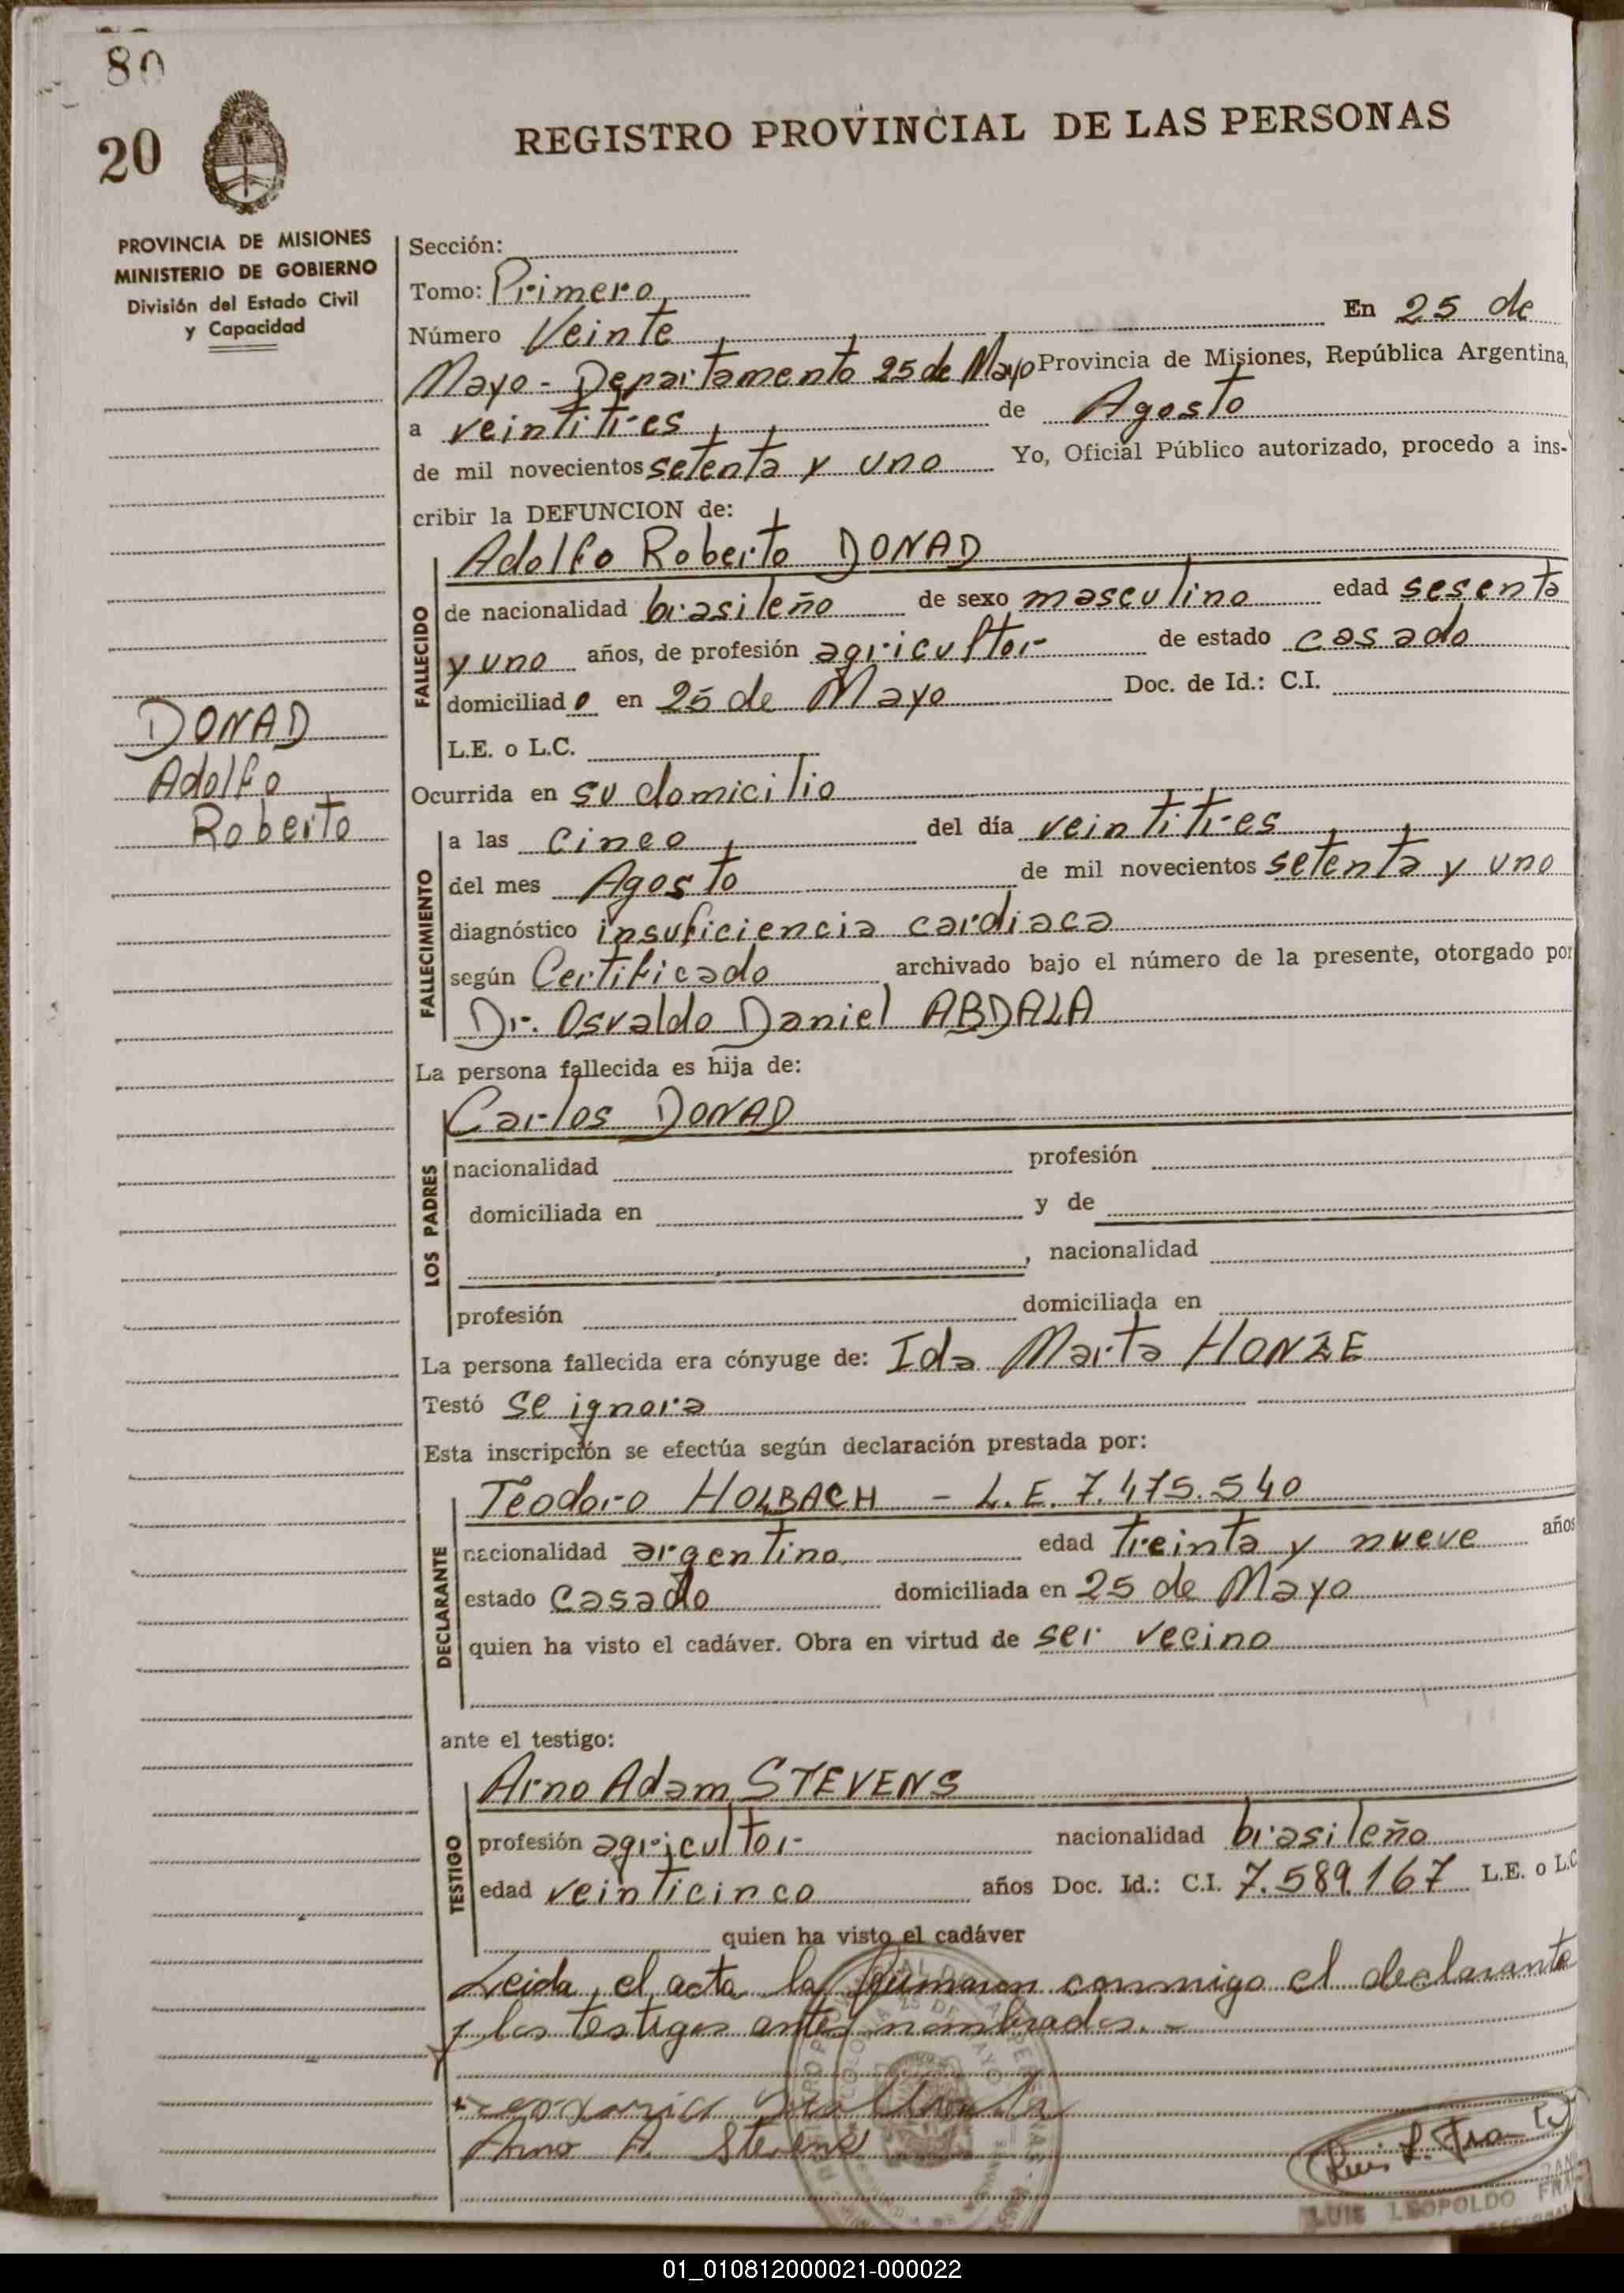 80
20
REGISTRO PROVINCIAL DE LAS PERSONAS
PROVINCIA DE MISIONES
MINISTERIO DE GOBIERNO
División del Estado Civil
y Capacidad
Sección:
Tomo: Primero
Número Veinte En 25 de
Mayo - Departamento 25 de Mayo Provincia de Misiones, República Argentina,
a veintitres de Agosto
de mil novecientos setenta y uno Yo, Oficial Público autorizado, procedo a ins-
cribir la DEFUNCION de:
FALLECIDO
Adolfo Roberto DONAD
de nacionalidad brasileño de sexo masculino edad sesenta
y uno años, de profesión agricultor de estado casado
domiciliado en 25 de Mayo Doc. de Id.: C.I.
L.E. o L.C.
DONAD
Adolfo
Roberto
Ocurrida en su domicilio
FALLECIMIENTO
a las cinco del día veintitres
del mes Agosto de mil novecientos setenta y uno
diagnóstico insuficiencia cardiaca
según Certificado archivado bajo el número de la presente, otorgado por
Dr. Osvaldo Daniel ABDALA
La persona fallecida es hija de:
LOS PADRES
Carlos DONAD
nacionalidad profesión
domiciliada en y de
, nacionalidad
profesión domiciliada en
La persona fallecida era cónyuge de: Ida Marta HONZE
Testó se ignora
Esta inscripción se efectúa según declaración prestada por:
DECLARANTE
Teodoro HOLBACH - L.E. 7.475.540
nacionalidad argentino edad treinta y nueve años
estado casado domiciliada en 25 de Mayo
quien ha visto el cadáver. Obra en virtud de ser vecino
ante el testigo:
TESTIGO
Arno Adam STEVENS
profesión agricultor nacionalidad brasileño
edad veinticinco años Doc. Id.: C.I. 7.589.167 L.E. o L.C
quien ha visto el cadáver
Leida el acta la firmaron conmigo el declarante
y los testigos antes nombrados.-
Arno A. Stevens
Luis L. Fran
LUIS LEOPOLDO
01_010812000021-000022